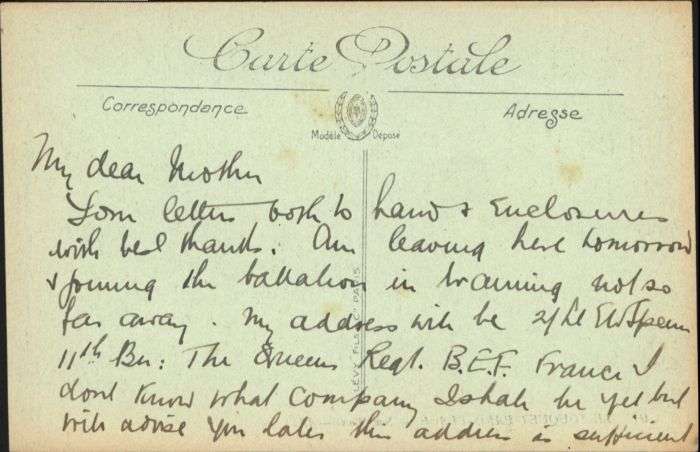 Carte Postale
Correspondance Adresse
Modèle Déposé
My dear Mother
Your letters both to hand & Enclosures
with best thanks. Am leaving here tomorrow
& joining the battalion in training not so
far away. My address will be 2/Lt
11th Bn: The Queens Regt. B.E.F. France I
dont know what Company I shall be yet but
will advise you later this address is sufficient